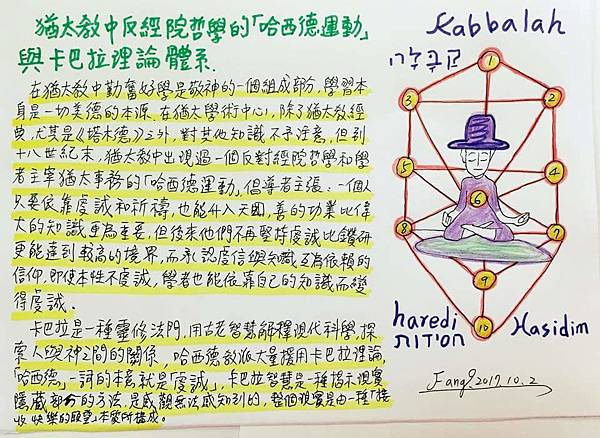 猶太教中反經院哲學的「哈西德運動」
與卡巴拉理論體系.
在猶太教中勤奮好學是敬神的一個組成部分,學習本
身是一切美德的本源.在猶太學術中心,除了猶太教經
典,尤其是《塔木德》之外,對其他知識不予注意,但到
十八世紀末,猶太教中出現過一個反對經院哲學和學
者主宰猶太事務的「哈西德運動」,倡導者主張:一個人
只要依靠虔誠和祈禱,也能升入天國,善的功業比偉
大的知識更為重要,但後來他們不再堅持虔誠比鑽研
更能達到較高的境界,而承認虔信與知識互為依賴的
信仰,即使本性不虔誠,學者也能依靠自己的知識而變
得虔誠.
卡巴拉是一種靈修法門,用古老智慧解釋現代科學,探
索人與神之間的關係,哈西德教派大量援用卡巴拉理論,
「哈西德」一詞的本意就是「虔誠」,卡巴拉智慧是一種揭示現實
隱藏部分的方法,是感觀無法感知到的,整個現實是由一種「接
收快樂的願望」本質所構成。
Kabbalah
קבלה
1
3
2
5
4
6
8
7
9
10
haredi
חסידות
Hasidim
Fang 2017.10.2